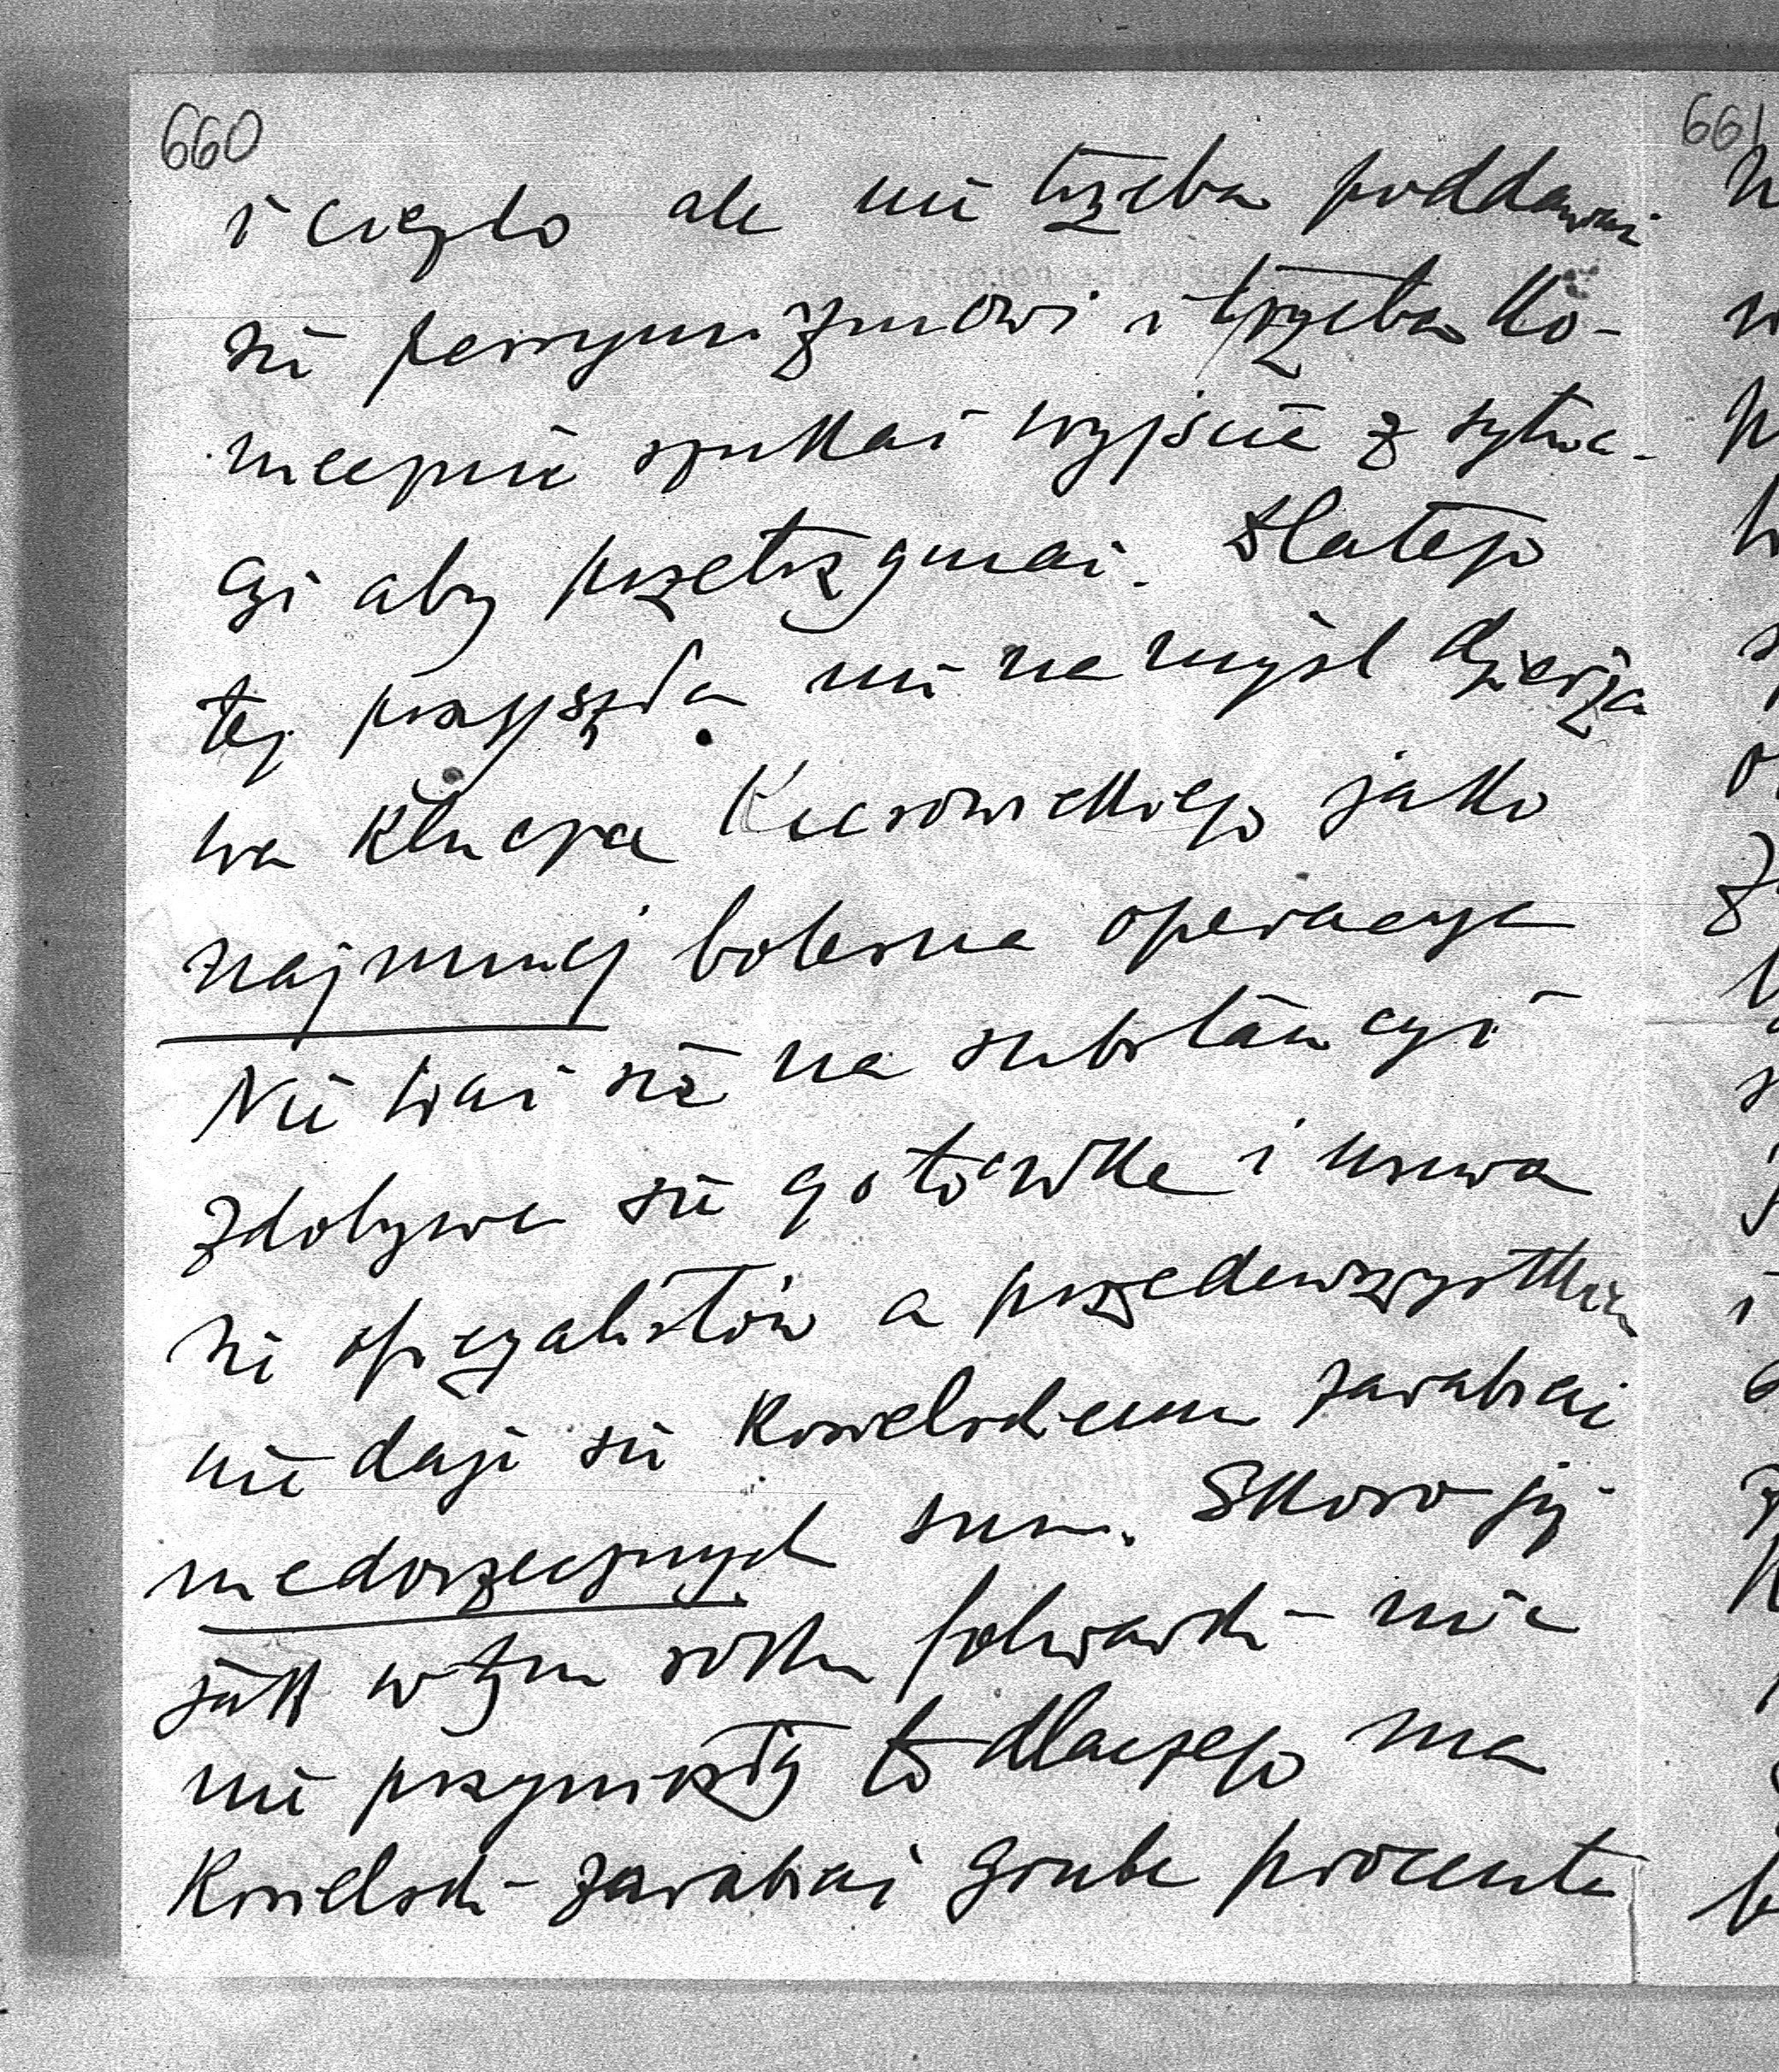 660
i ciężko ale nie trzeba poddawać
się pessymizmowi i trzeba ko-
niecznie szukać wyjście z sytua-
cyi aby przetrzymać. Dlatego
też przyszła mi na myśl dzierża
wa klucza jako
najmniej bolesna operacya
Nie traci się na substancyi
zdobywa się gotówkę i usuwa
się oficyalistów a przedewszystkiem
nie daje się Kosielskiemu zarabiać
niedorzecznych sum. Skoro już
jak w tym roku folwarki nic
nie przyniosły to dlaczego ma
Kosielski zarabiać grube procenta
661